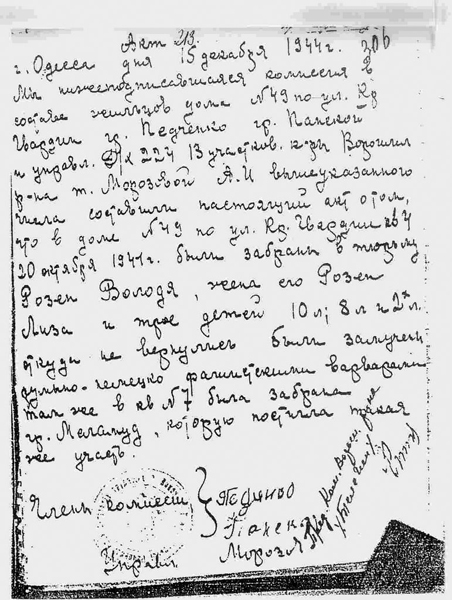 Акт 213. 306
г. Одесса дня 15 декабря 1944 г.
Мы нижеподписавшаяся комиссия в
составе жильцов дома N 49 по ул. Кр
Гвардии гр. Педченко гр. Панской
и управл. 224 13 участков. к-ры Ворошил
р-на т. Морозовой А.И вышеуказанного
числа составили настоящий акт о том,
что в доме N 49 по ул. Кр. Гвардии кв 4
20 октября 1941 г. были забраны в тюрьму
Розен Володя, жена его Розен
Лиза и трое детей 10 л; 8 л и 2х л.
откуда не вернулись были замучены
румыно-немецко фашистскими варварами
так же в кв N 7 была забрана
гр. Меламуд, которую постигла такая
же участь.
Члены комиссии
Управл Мороз